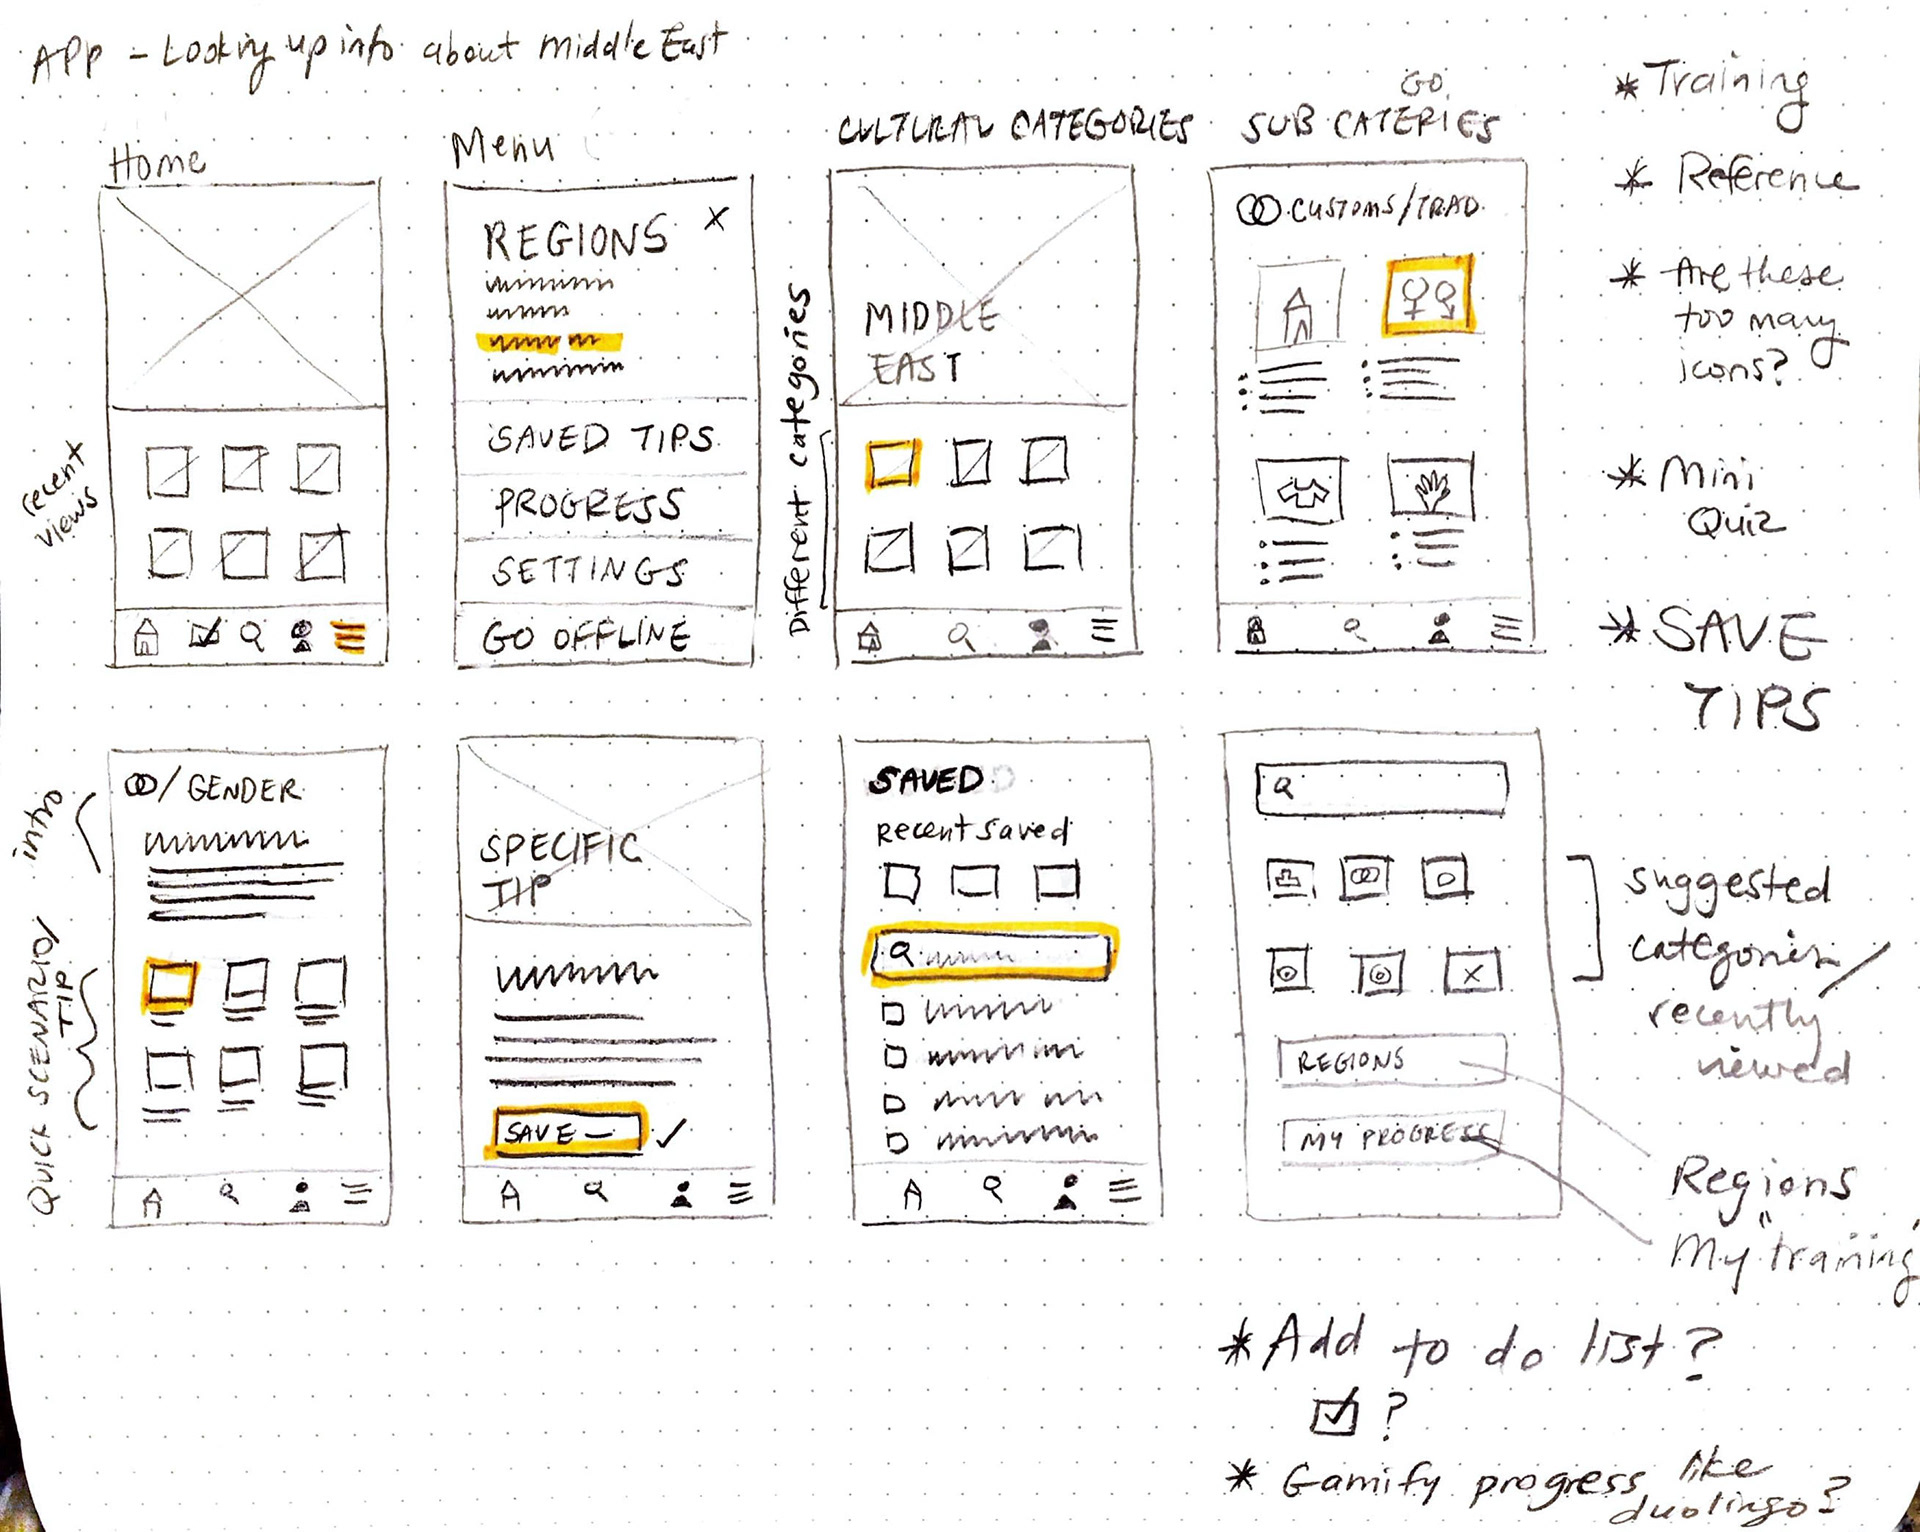 APP - Looking up info about Middle East
Home
Menu
CULTURAL CATEGORIES
GO
SUB CATERIES
REGIONS
X
SAVED TIPS
PROGRESS
SETTINGS
GO OFFLINE
MIDDLE
EAST
CUSTOMS/TRAD.
recent
views
Different categories
* Training
* Reference
* Are these
too many
icons?
* Mini
Quiz
* SAVE
TIPS
/ GENDER
intro
QUICK SCENARIO/
TIP
SPECIFIC
TIP
SAVE —
SAVED
Recent saved
REGIONS
MY PROGRESS
suggested
categories/
recently
viewed
Regions
My "training"
* Add to do list?
?
* Gamify progress like
duolingo?